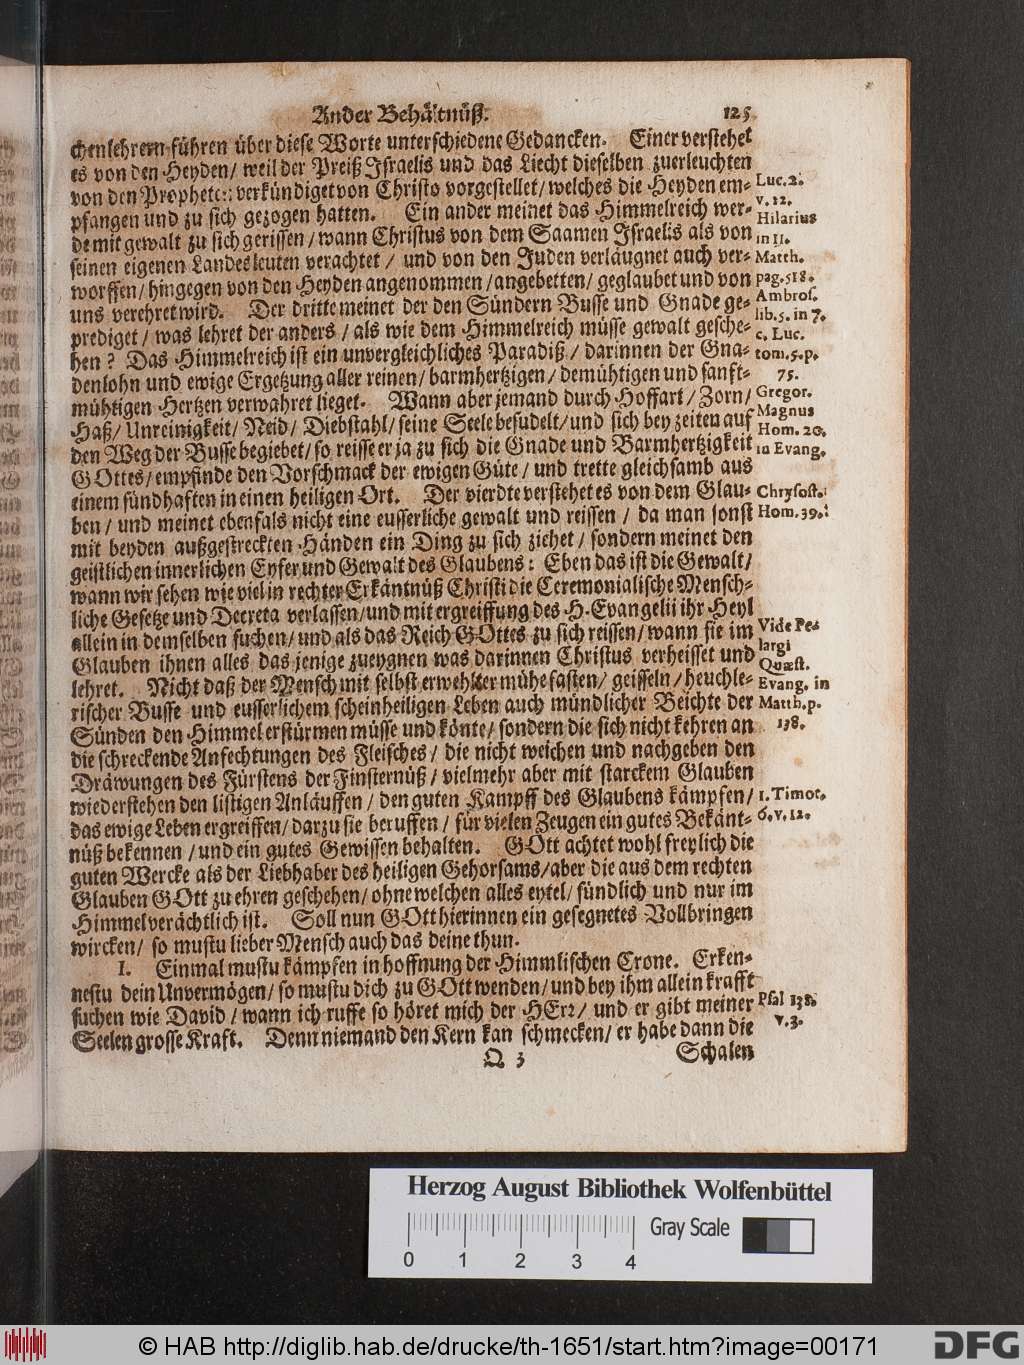 Ander Behältnüß. 125
chenlehrern führen über diese Worte unterschiedene Gedancken. Einer verstehet
es von den Heyden/ weil der Preiß Israelis und das Liecht dieselben zuerleuchten
von den Propheten verkündiget von Christo vorgestellet/ welches die Heyden em-
pfangen und zu sich gezogen hatten. Ein ander meinet das Himmelreich wer-
de mit gewalt zu sich gerissen/ wann Christus von dem Saamen Israelis als von
seinen eigenen Landesleuten verachtet/ und von den Juden verläugnet auch ver-
worffen/ hingegen von den Heyden angenommen/ angebetten/ geglaubet und von
uns verehret wird. Der dritte meinet der den Sündern Busse und Gnade ge-
prediget/ was lehret der anders/ als wie dem Himmelreich müsse gewalt gesche-
hen? Das Himmelreich ist ein unvergleichliches Paradiß/ darinnen der Gna-
denlohn und ewige Ergetzung aller reinen/ barmhertzigen/ demühtigen und sanft-
mühtigen Hertzen verwahret lieget. Wann aber jemand durch Hoffart/ Zorn/
Haß/ Unreinigkeit/ Neid/ Diebstahl/ seine Seele besudelt/ und sich bey zeiten auf
den Weg der Busse begiebet/ so reisse er ja zu sich die Gnade und Barmhertzigkeit
GOttes/ empfinde den Vorschmack der ewigen Güte/ und trette gleichsamb aus
einem sündhaften in einen heiligen Ort. Der vierdte verstehet es von dem Glau-
ben/ und meinet ebenfals nicht eine eusserliche gewalt und reissen/ da man sonst
mit beyden außgestreckten Händen ein Ding zu sich ziehet/ sondern meinet den
geistlichen innerlichen Eyfer und Gewalt des Glaubens: Eben das ist die Gewalt/
wann wir sehen wie viel in rechter Erkäntnüß Christi die Ceremonialische Mensch-
liche Gesetze und Decreta verlassen/ und mit ergreiffung des H. Evangelii ihr Heyl
allein in demselben suchen/ und als das Reich GOttes zu sich reissen/ wann sie im
Glauben ihnen alles das jenige zueygnen was darinnen Christus verheisset und
lehret. Nicht daß der Mensch mit selbst erwehlter mühe fasten/ geisseln/ heuchle-
rischer Busse und eusserlichem scheinheiligen Leben auch mündlicher Beichte der
Sünden den Himmel erstürmen müsse und könte/ sondern die sich nicht kehren an
die schreckende Anfechtungen des Fleisches/ die nicht weichen und nachgeben den
Dräwungen des Fürstens der Finsternüß/ vielmehr aber mit starckem Glauben
wiederstehen den listigen Anläuffen/ den guten Kampff des Glaubens kämpfen/
das ewige Leben ergreiffen/ darzu sie beruffen/ für vielen Zeugen ein gutes Bekänt-
nüß bekennen/ und ein gutes Gewissen behalten. GOtt achtet wohl freylich die
guten Wercke als der Liebhaber des heiligen Gehorsams/ aber die aus dem rechten
Glauben GOtt zu ehren geschehen/ ohne welchen alles eytel/ sündlich und nur im
Himmel verächtlich ist. Soll nun GOtt hierinnen ein gesegnetes Vollbringen
wircken/ so mustu lieber Mensch auch das deine thun.
I. Einmal mustu kämpfen in hoffnung der Himmlischen Crone. Erken-
nestu dein Unvermögen/ so mustu dich zu GOtt wenden/ und bey ihm allein krafft
suchen wie David/ wann ich ruffe so höret mich der HErr/ und er gibt meiner
Seelen grosse Kraft. Denn niemand den Kern kan schmecken/ er habe dann die
Q 3 Schalen
Luc. 2.
v. 12.
Hilarius
in 11.
Matth.
pag. 518.
Ambros.
lib. 5. in 7.
c. Luc.
tom. 5. p.
75.
Gregor.
Magnus
Hom. 20.
in Evang.
Chrysost.
Hom. 39.
Vide Pe-
largi
Quæst.
Evang. in
Matth. p.
138.
1. Timot.
6. v. 12.
Psal 138.
v. 3.
Herzog August Bibliothek Wolfenbüttel
Gray Scale
0 1 2 3 4
© HAB http://diglib.hab.de/drucke/th-1651/start.htm?image=00171
DFG